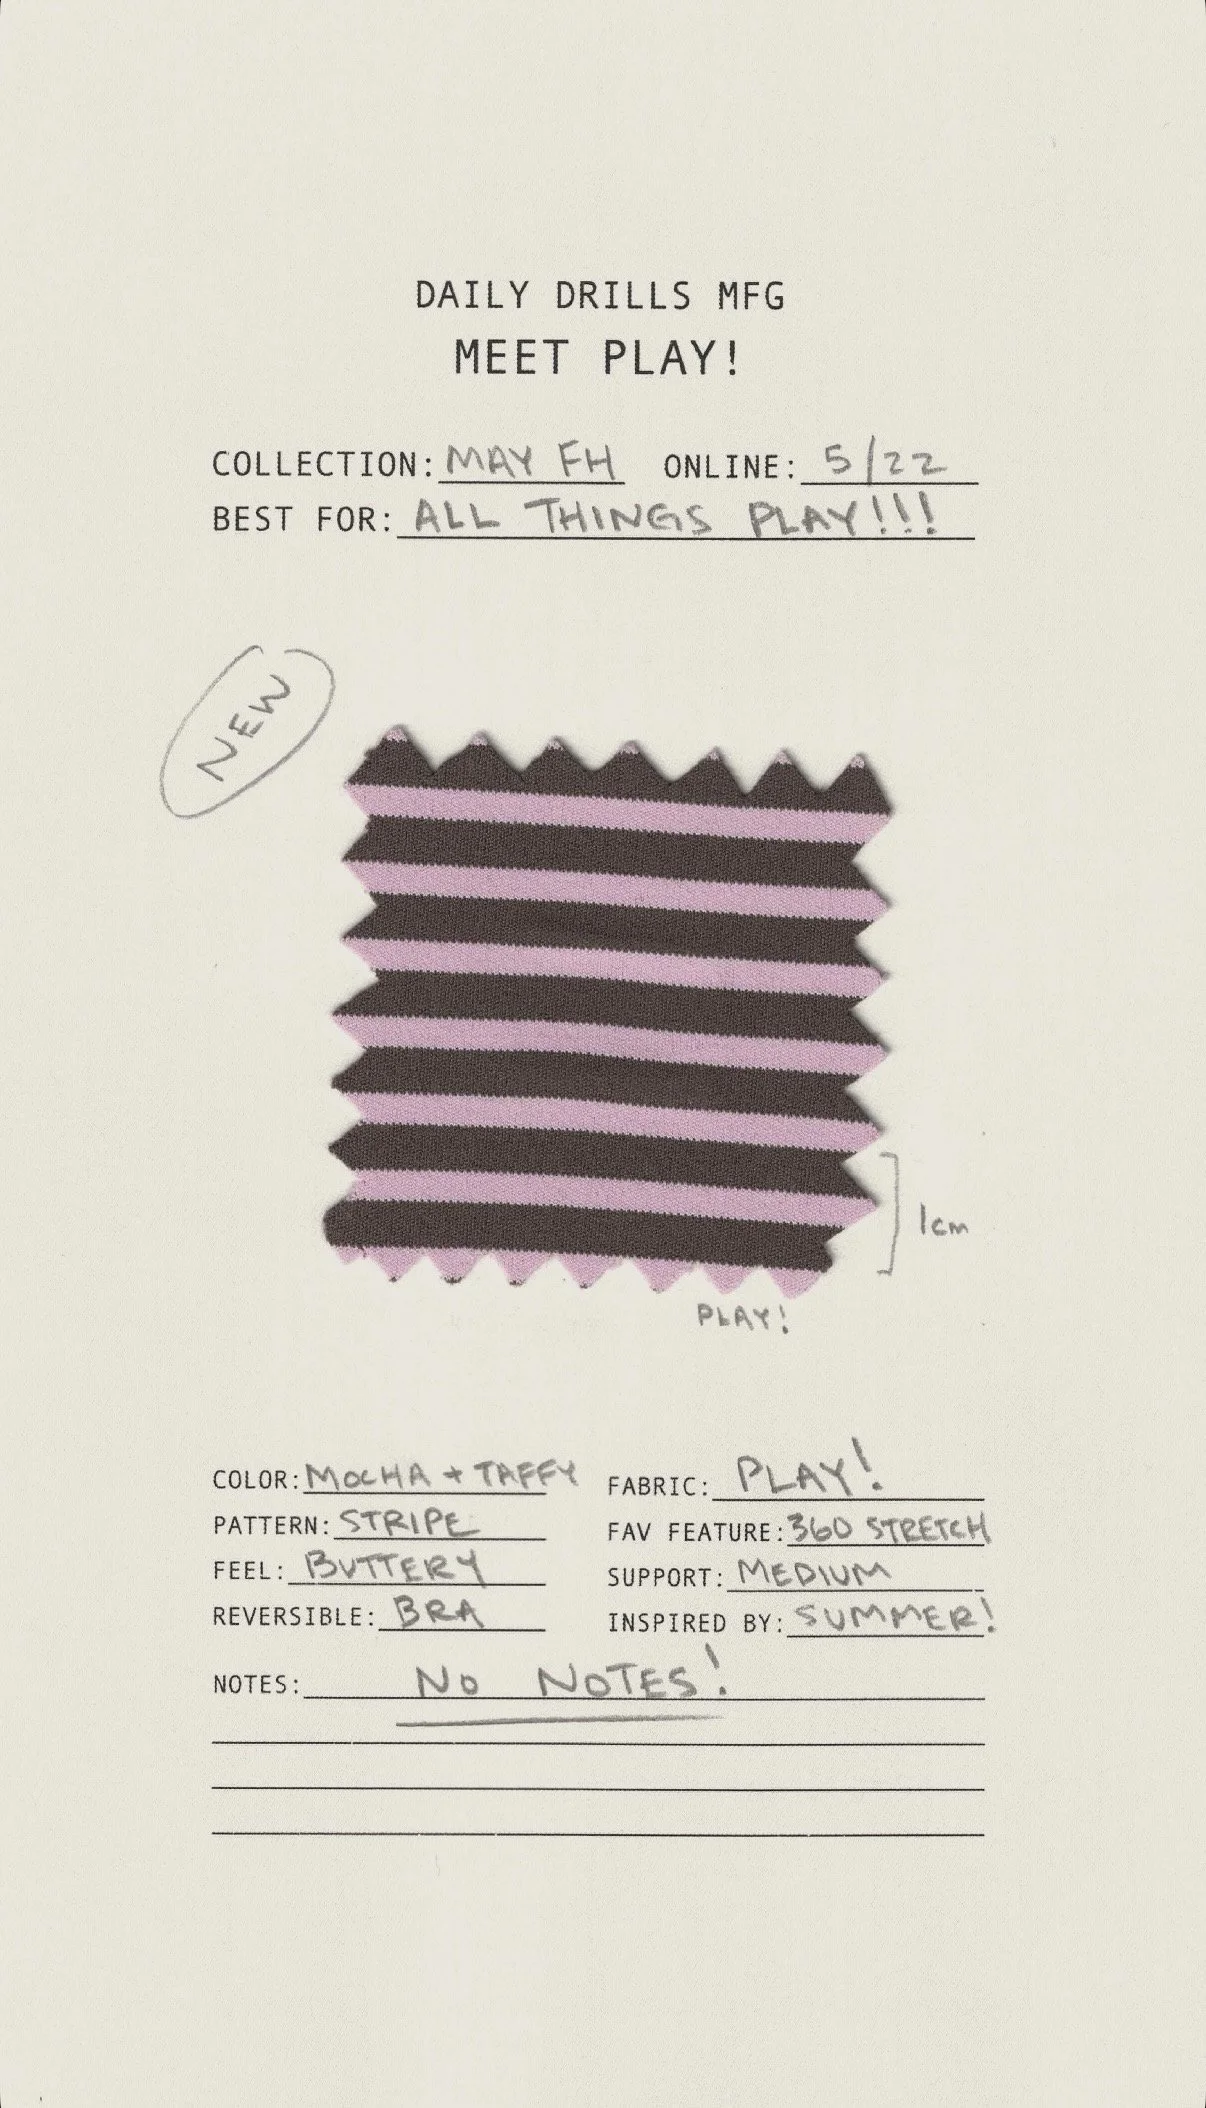 DAILY DRILLS MFG
MEET PLAY!
COLLECTION: MAY FH ONLINE: 5/22
BEST FOR: ALL THINGS PLAY!!!
NEW
1cm
PLAY!
COLOR: MOCHA + TAFFY FABRIC: PLAY!
PATTERN: STRIPE FAV FEATURE: 360 STRETCH
FEEL: BUTTERY SUPPORT: MEDIUM
REVERSIBLE: BRA INSPIRED BY: SUMMER!
NOTES: NO NOTES!